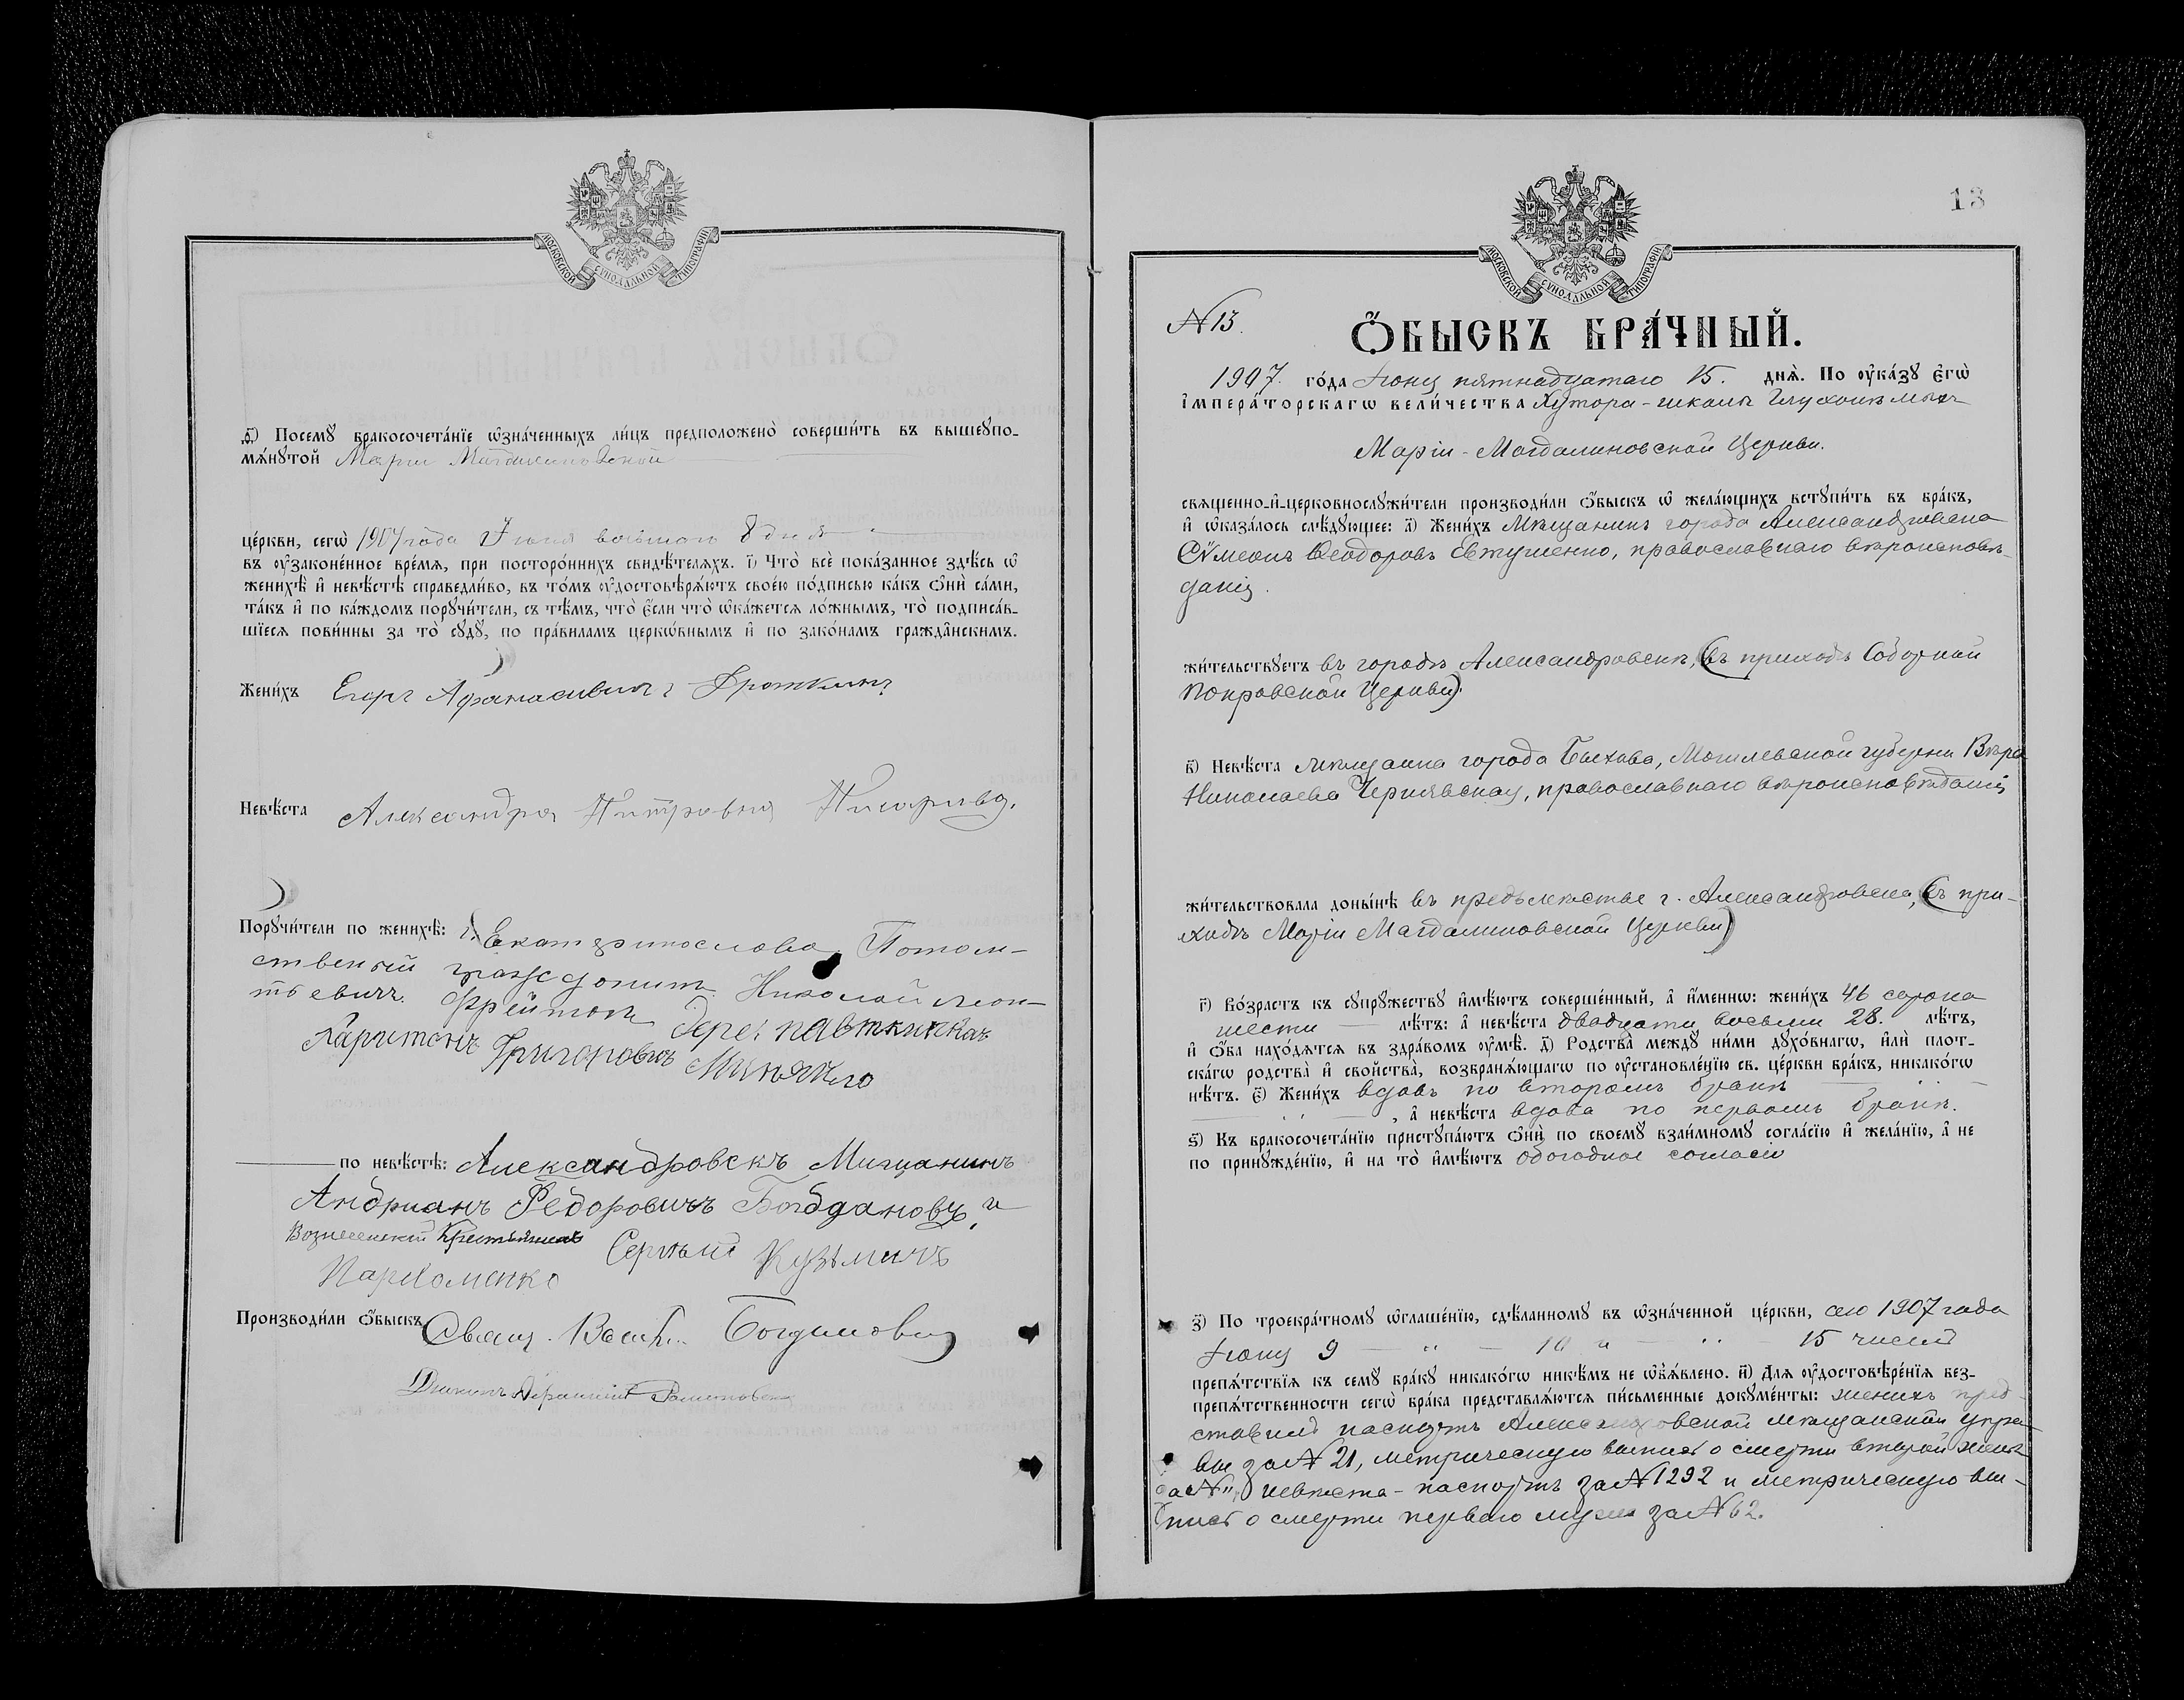 МОСКОВСКОЙ СѴНОДАЛЬНОЙ ТИПОГРАФІИ
Ѳ҃) Посемꙋ̀ бракосочета́нїе ѡ҆зна́ченныхъ ли́цъ предположено̀ соверши́ть въ вышеꙋпо-
мѧ́нꙋтой Маріи Магдалиновской
це́ркви, сегѡ̀ 1907 года Іюня восьмого 8 дня
въ ᲂу҆зако́ненное вре́мѧ, при посторо́ннихъ свидѣ́телѧхъ. І҃) Что̀ всѐ пока́занное здѣ́сь ѡ҆
женихѣ̀ и҆ невѣ́стѣ справедли́во, въ то́мъ ᲂу҆достовѣрѧ́ютъ свое́ю по́дписью ка́къ ѻ҆нѝ са́ми,
та́къ и҆ по ка́ждомъ порꙋчи́тели, съ тѣ́мъ, что̀ є҆́сли что̀ ѡ҆ка́жетсѧ ло́жнымъ, то̀ подписа́в-
шїесѧ пови́нны за то̀ сꙋдꙋ̀, по пра́виламъ церкѡ́внымъ и҆ по зако́намъ гражда̑нскимъ.
Жени́хъ Егоръ Афанасьевичъ Фроткинъ
Невѣ́ста Александра Питровна Писарива.
Порꙋчи́тели по женихѣ̀: г. Екатеринослава, Потом-
ственый гражданинъ Николай Леон-
тьевичъ. Фрейтогъ дере. павткинка
Харитонъ Григоровичъ
по невѣ́стѣ: Александровскъ Мищанинъ
Андрианъ Федоровичъ Богдановъ, и
Вознесенский Крестьянинъ Сергѣй Кузьмичъ
Пархоменко
Производи́ли ѻ҆́быскъ Свящ. Васил. Богдановъ
13
МОСКОВСКОЙ СѴНОДАЛЬНОЙ ТИПОГРАФІИ
№ 13.
Ѻ҆́БЫСКЪ БРА́ЧНЫЙ.
1907. го́да Іюня пятнадцатаго 15. днѧ̀. По ᲂу҆ка́зꙋ є҆гѡ̀
і҆мпера́торскагѡ вели́чества Хутора-школы Глухонѣмыхъ
Маріи-Магдалиновской Церкви.
свѧщенно-и҆-церковнослꙋжи́тели производи́ли ѻ҆́быскъ ѡ҆ жела́ющихъ встꙋпи́ть въ бра́къ,
и҆ ѡ҆каза́лось слѣ́дꙋющее: а҃) Жени́хъ Мѣщанинъ города Александровска
Сѵмеонъ Ѳеодоровъ Евтушенко, православнаго вѣроисповѣ-
данія.
жи́тельствꙋетъ въ городѣ Александровскѣ, (въ приходѣ Соборной
Покровской Церкви).
в҃) Невѣ́ста мѣщанка города Быхова, Могилевской губерни Вѣра
Николаева Чернявская, православнаго вѣроисповѣданія
жи́тельствовала доны́нѣ въ предьмѣстье г. Александровска, (въ при-
ходѣ Маріи Магдалиновской Церкви)
г҃) Во́зрастъ къ сꙋпрꙋ́жествꙋ и҆мѣ́ютъ соверше́нный, а҆ и҆́меннѡ: жени́хъ 46 сорока
шести лѣ́тъ: а҆ невѣ́ста двадцати восьми 28. лѣ́тъ,
и҆ ѻ҆́ба нахо́дѧтсѧ въ здра́вомъ ᲂу҆мѣ̀. д҃) Родства̀ междꙋ̀ ни́ми дꙋхо́внагѡ, и҆лѝ плот-
ска́гѡ родства̀ и҆ свойства̀, возбранѧ́ющагѡ по ᲂу҆становле́нїю св. це́ркви бра́къ, никако́гѡ
нѣ́тъ. є҃) Жени́хъ вдовъ по второмъ бракѣ
, а҆ невѣ́ста вдова по первомъ бракѣ.
ѕ҃) Къ бракосочета́нїю пристꙋпа́ютъ ѻ҆нѝ по своемꙋ̀ взаи́мномꙋ согла́сїю и҆ жела́нїю, а҆ не
по принꙋжде́нїю, и҆ на то̀ и҆мѣ́ютъ обогодное согласіе
з҃) По троекра́тномꙋ ѡ҆глаше́нїю, сдѣ́ланномꙋ въ ѡ҆зна́ченной це́ркви, сего 1907 года
Іюня 9 — " — 10 " — " — 15 чиселъ
препѧ́тствїѧ къ семꙋ̀ бра́кꙋ никако́гѡ никѣ́мъ не ѡ҆бъѧ́влено. и҃) Длѧ ᲂу҆достовѣре́нїѧ без-
препѧ́тственности сегѡ̀ бра́ка представлѧ́ютсѧ пи́сьменные докꙋме́нты: женихъ пред-
ставилъ паспортъ Александровской мѣщанской упра-
вы за № 21, метрическую выпись о смерти второй жены
за № 11, невѣста - паспортъ за № 1292 и метрическую вы-
пись о смерти перваго мужа за № 62.